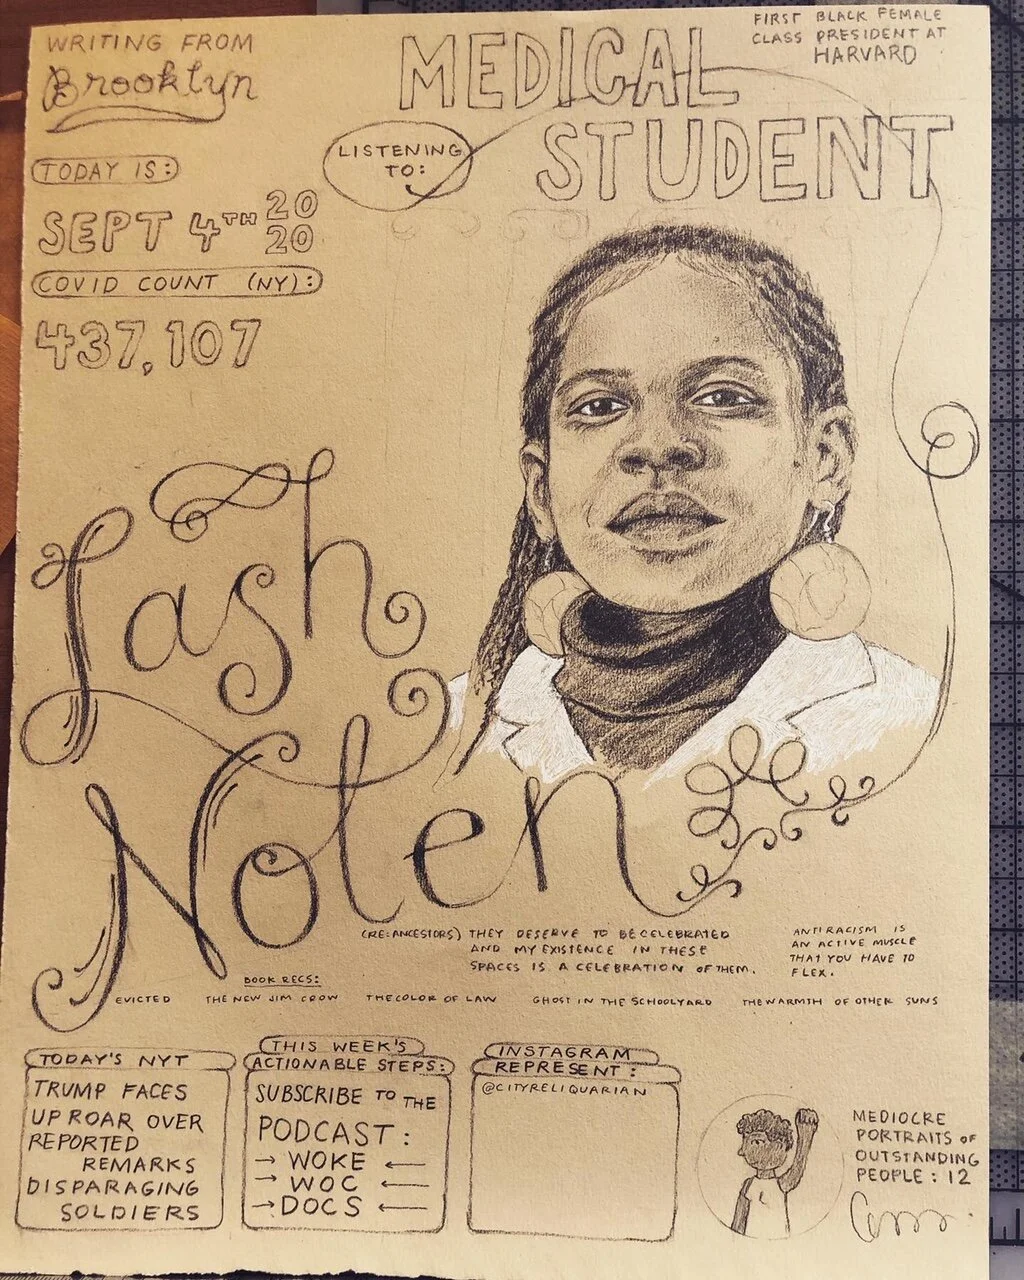 WRITING FROM
Brooklyn
TODAY IS:
SEPT 4TH 2020
COVID COUNT (NY):
437,107
MEDICAL
STUDENT
FIRST BLACK FEMALE
CLASS PRESIDENT AT
HARVARD
LISTENING
TO:
Lash
Nolen
(RE: ANCESTORS) THEY DESERVE TO BE CELEBRATED
AND MY EXISTENCE IN THESE
SPACES IS A CELEBRATION OF THEM.
ANTIRACISM IS
AN ACTIVE MUSCLE
THAT YOU HAVE TO
FLEX.
BOOK RECS:
EVICTED THE NEW JIM CROW THE COLOR OF LAW GHOST IN THE SCHOOLYARD THE WARMTH OF OTHER SUNS
TODAY'S NYT
TRUMP FACES
UPROAR OVER
REPORTED
REMARKS
DISPARAGING
SOLDIERS
THIS WEEK'S
ACTIONABLE STEPS:
SUBSCRIBE TO THE
PODCAST:
→ WOKE ←
→ WOC ←
→ DOCS ←
INSTAGRAM
REPRESENT:
@CITYRELIQUARIAN
MEDIOCRE
PORTRAITS OF
OUTSTANDING
PEOPLE: 12